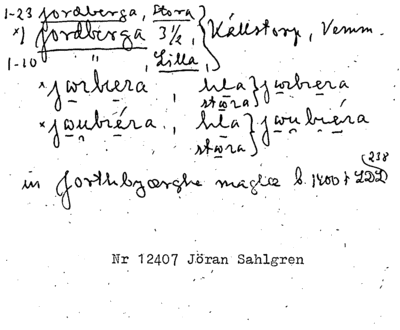 1-23 Jordberga, Stora
×) Jordberga 3½, Källstorp, Vemm.
1-10 " , Lilla,
×jɷrbɛra , lɩla jɷrbɛra
stɷra
×jɷu̯biéra , lɩla jɷu̯biéra
stɷra
in Jorthbyærghe maglæ b. 1400t LDL 238
Nr 12407 Jöran Sahlgren